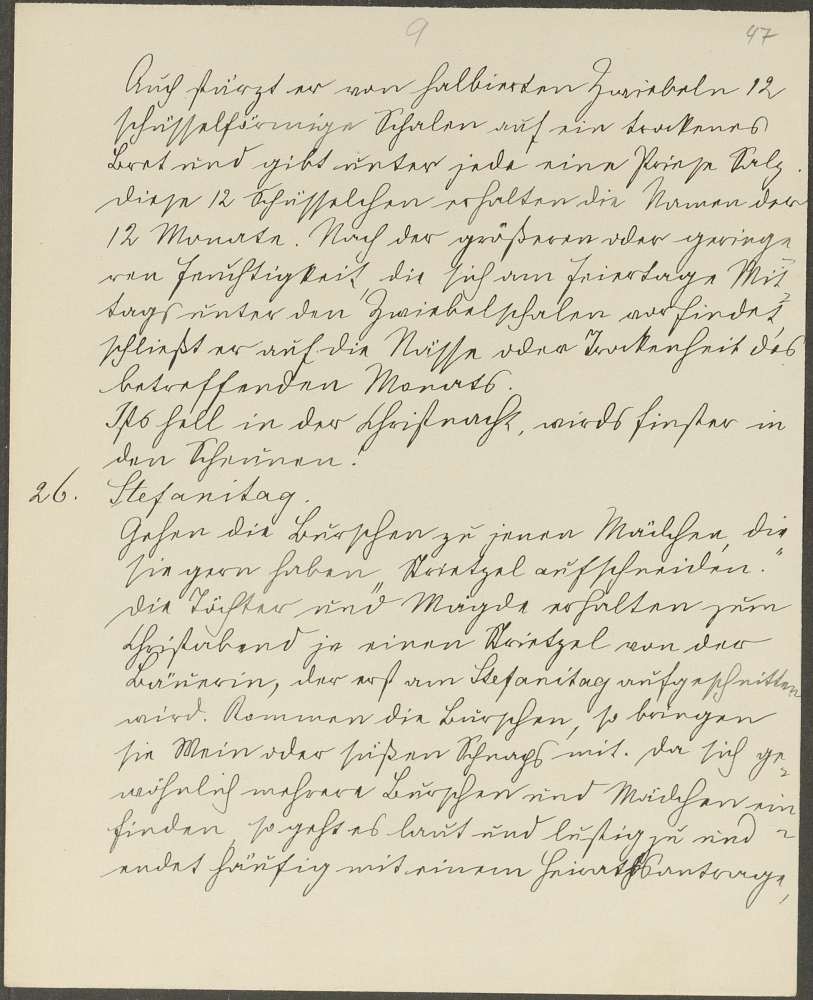 9 47
Auch stürzt er von halbierten Zwiebeln 12
schüsselförmige Schalen auf ein trockenes
Bret und gibt unter jede eine Priese Salz.
Diese 12 Schüsselchen erhalten die Namen der
12 Monate. Nach der größeren oder geringe
ren Feuchtigkeit, die sich am Feiertage Mit-
tags unter den Zwiebelschalen vorfindet,
schließt er auf die Nässe oder Trockenheit des
betreffenden Monats.
Ists hell in der Christnacht, wirds finster in
den Scheunen.
26. Stefanitag.
Gehen die Burschen zu jenen Mädchen, die
sie gern haben „Strietzel aufschneiden.“
Die Töchter und Mägde erhalten zum
Christabend je einen Strietzel von der
Bäuerin, der erst am Stefanitag aufgeschnitten
wird. Kommen die Burschen, so bringen
sie Wein oder süßen Schnaps mit. Da sich ge-
wöhnlich mehrere Burschen und Mädchen ein-
finden, so geht es laut und lustig zu und
endet häufig mit einem Heirathsantrage,